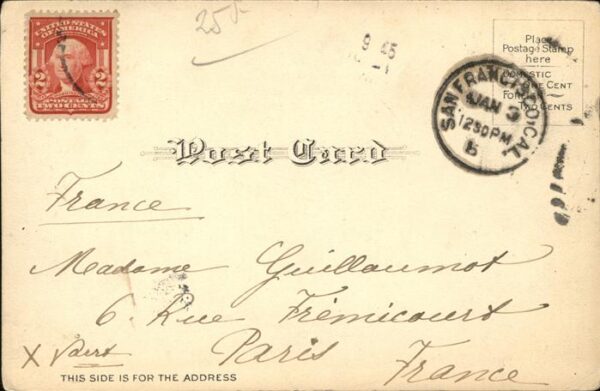 UNITED STATES
OF AMERICA
2 2
POSTAGE
TWO CENTS
25
9 45
Place
Postage Stamp
here
DOMESTIC
One Cent
Foreign
Two Cents
SAN FRANCISCO, CAL.
JAN 3
1230 PM
Post Card
France
Madame Guillaumot
6. Rue Frémicourt
X
Paris
France
THIS SIDE IS FOR THE ADDRESS